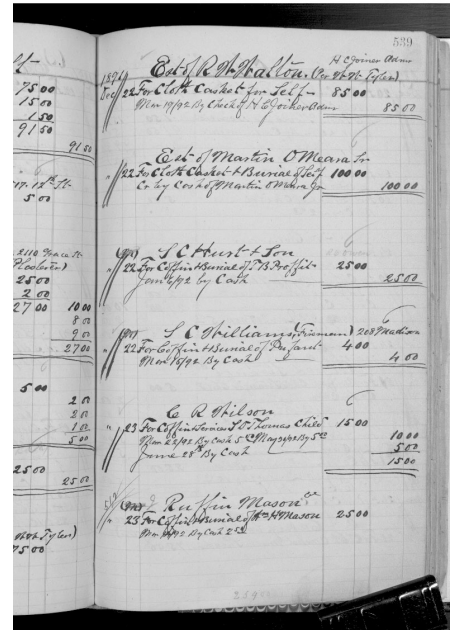 75 00
15 00
1 50
91 50
91 50
5 00
2110 Grace St
25 00
2 00
27 00 10 00
8 00
9 00
27 00
5 00
2 00
2 00
1 00
5 00
25 00
25 00
Tyler)
75 00
539
H C Joiner Admr
Est of R W Walton. (Per Tyler)
Dec 22 For Cloth Casket for Self 85 00
Mar 19/92 By Check of H C Joiner Admr 85 00
Est of Martin O'Meara Sr
" 22 For Cloth Casket & Burial of Self 100 00
Cr by Cash of Martin O'Meara Jr 100 00
S C Hurt & Son
22 For Coffin & Burial of T B Proffit 25 00
Jan 6/92 by Cash 25 00
S C Williams (Fireman) 208 Madison
22 For Coffin & Burial of Infant 4 00
Mar 18/92 By Cash 4 00
C R Wilson
" 23 For Coffin & Services Thomas Child 15 00
Mar 22/92 By Cash 5 00 May 21/92 By 5 00 10 00
June 28th By Cash 5 00
15 00
Ruffin Mason
" 23 For Coffin & Burial of Wm H Mason 25 00
Mar /92 By Cash